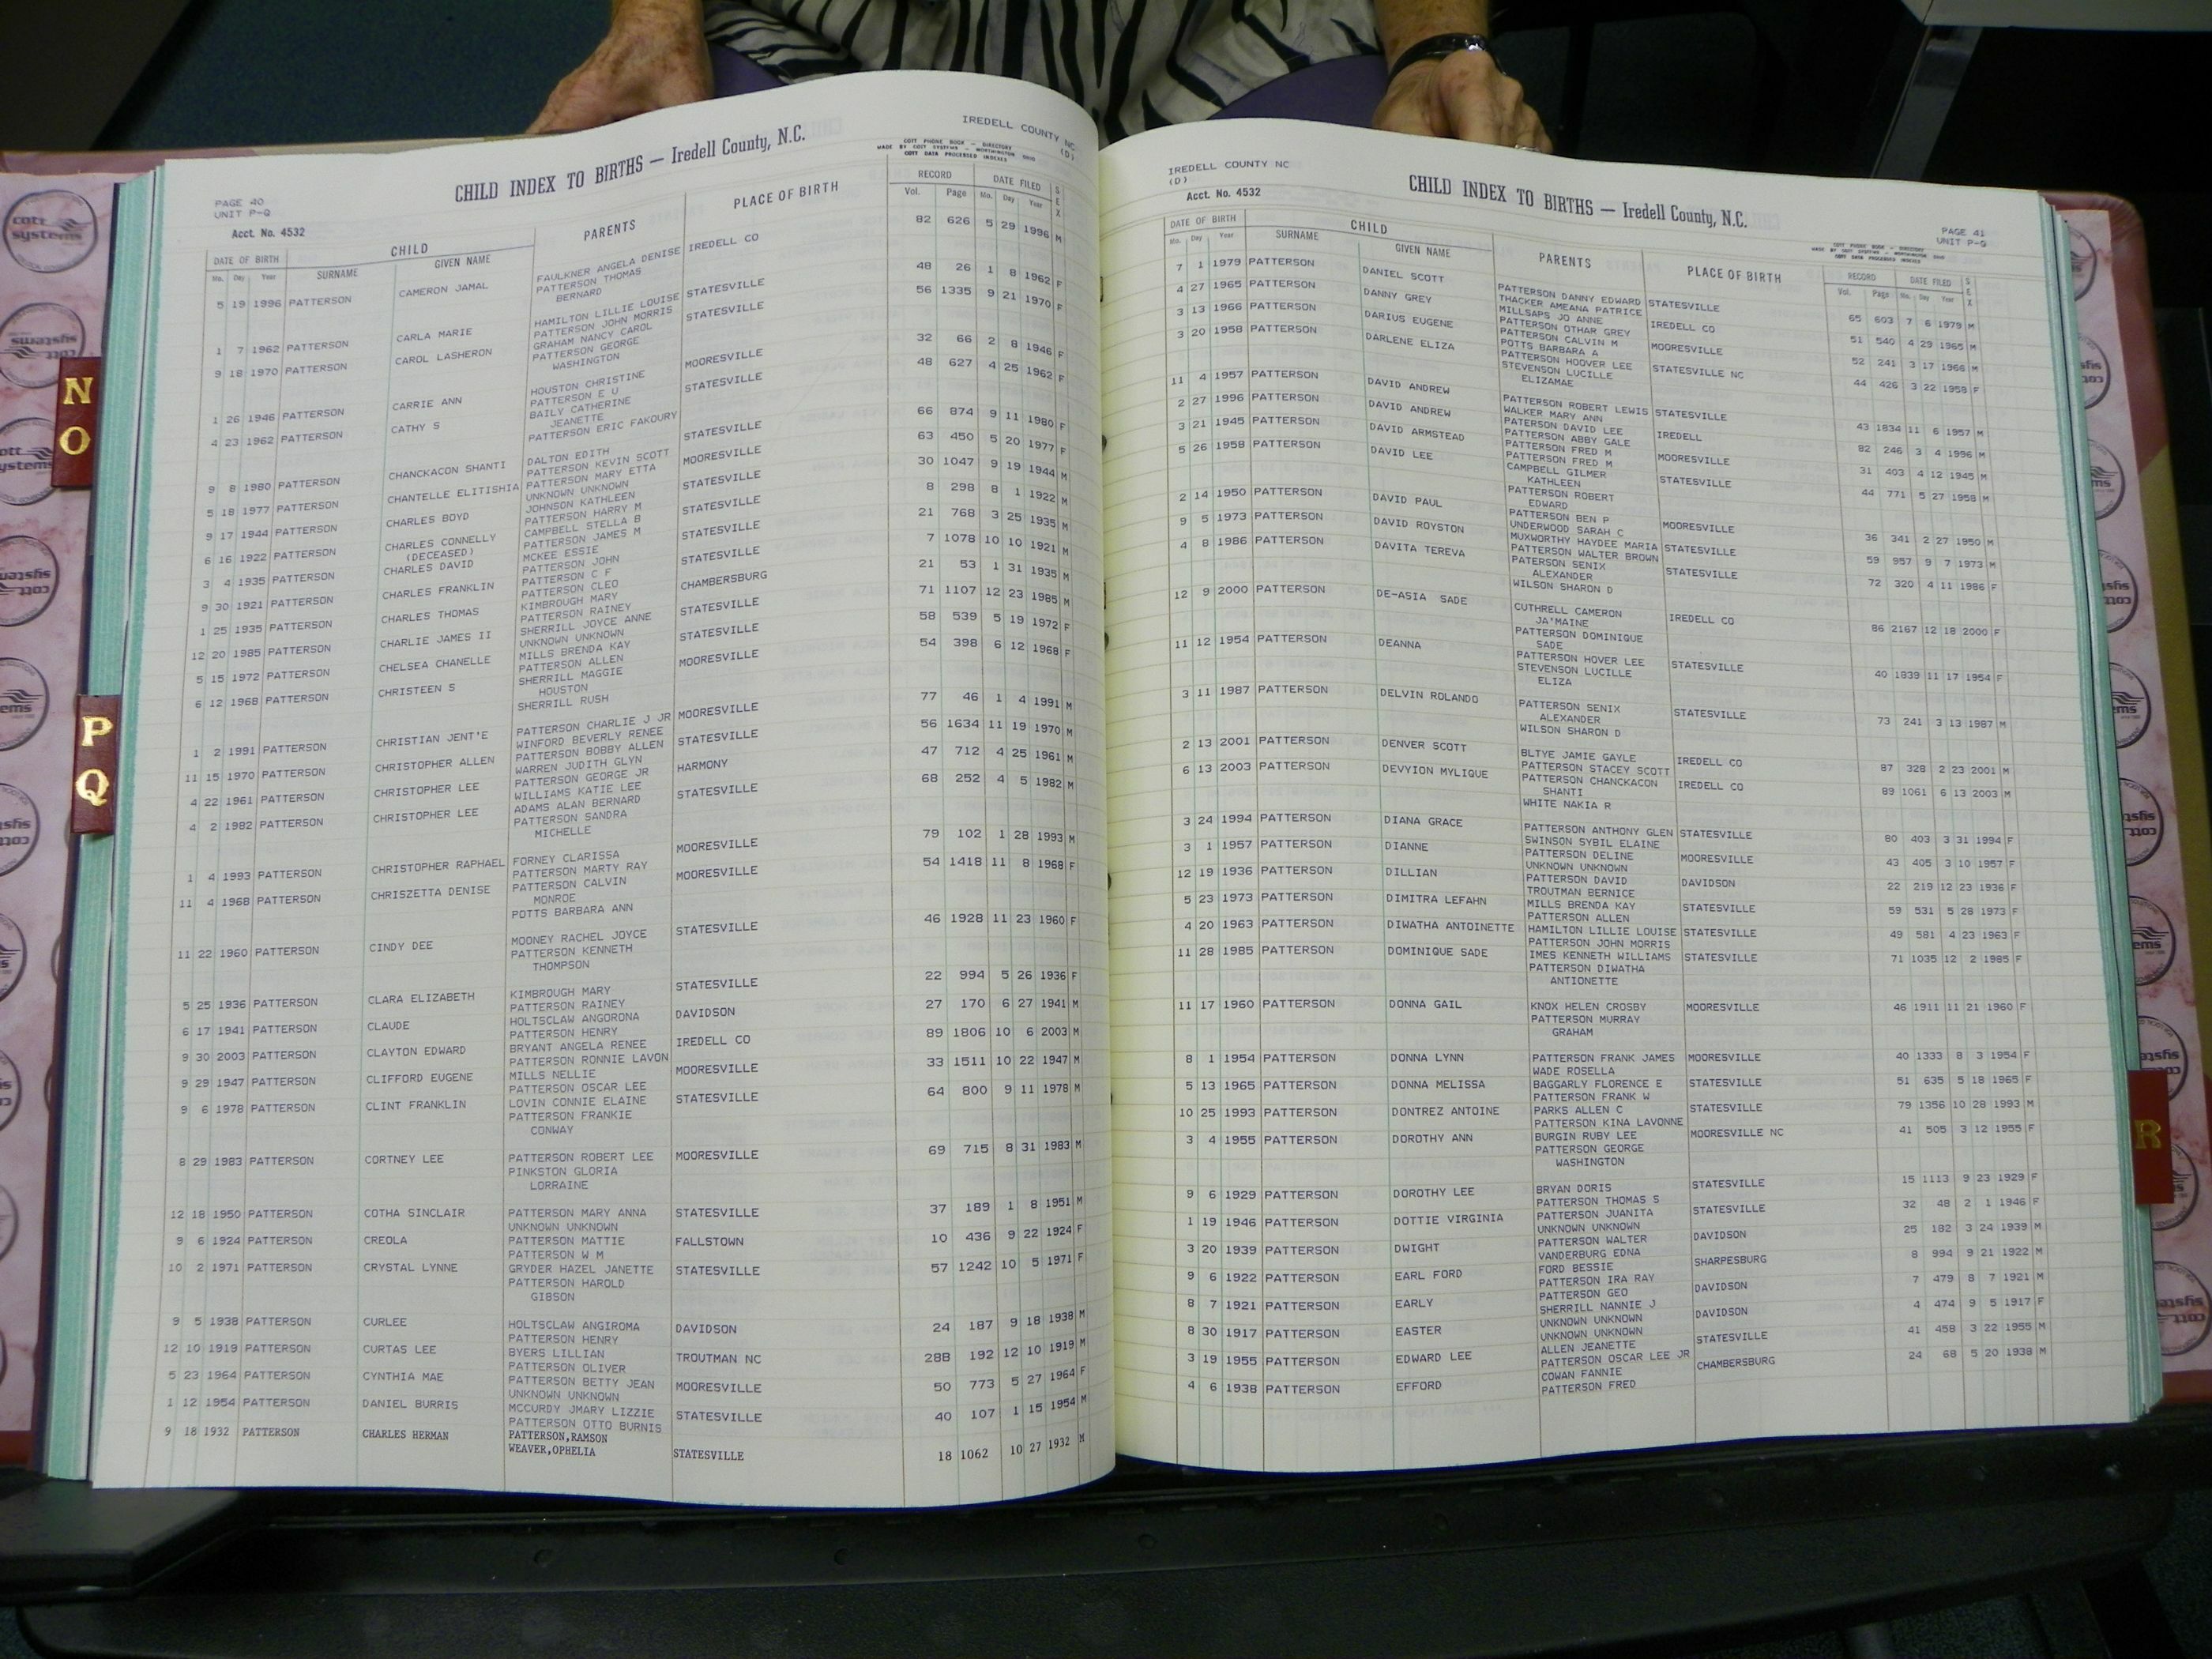 PAGE 40
UNIT P-Q
Acct. No. 4532
CHILD INDEX TO BIRTHS — Iredell County, N.C.
IREDELL COUNTY NC
(D)
COTT PHONE BOOK - DIRECTORY
MADE BY COTT SYSTEMS - WORTHINGTON OHIO
COTT DATA PROCESSED INDEXES
DATE OF BIRTH CHILD PARENTS PLACE OF BIRTH RECORD DATE FILED SEX
Mo. Day Year SURNAME GIVEN NAME Vol. Page Mo. Day Year
5 19 1996 PATTERSON CAMERON JAMAL FAULKNER ANGELA DENISE IREDELL CO 82 626 5 29 1996 M
PATTERSON THOMAS
BERNARD
1 7 1962 PATTERSON CARLA MARIE HAMILTON LILLIE LOUISE STATESVILLE 48 26 1 8 1962 F
PATTERSON JOHN MORRIS
9 18 1970 PATTERSON CAROL LASHERON GRAHAM NANCY CAROL STATESVILLE 56 1335 9 21 1970 F
PATTERSON GEORGE
WASHINGTON
1 26 1946 PATTERSON CARRIE ANN HOUSTON CHRISTINE MOORESVILLE 32 66 2 8 1946 F
PATTERSON E U
4 23 1962 PATTERSON CATHY S BAILY CATHERINE STATESVILLE 48 627 4 25 1962 F
JEANETTE
PATTERSON ERIC FAKOURY
9 8 1980 PATTERSON CHANCKACON SHANTI DALTON EDITH STATESVILLE 66 874 9 11 1980 F
PATTERSON KEVIN SCOTT
5 18 1977 PATTERSON CHANTELLE ELITISHIA PATTERSON MARY ETTA MOORESVILLE 63 450 5 20 1977 F
UNKNOWN UNKNOWN
9 17 1944 PATTERSON CHARLES BOYD JOHNSON KATHLEEN STATESVILLE 30 1047 9 19 1944 M
PATTERSON HARRY M
6 16 1922 PATTERSON CHARLES CONNELLY CAMPBELL STELLA B STATESVILLE 8 298 8 1 1922 M
(DECEASED) PATTERSON JAMES M
3 4 1935 PATTERSON CHARLES DAVID MCKEE ESSIE STATESVILLE 21 768 3 25 1935 M
PATTERSON JOHN
9 30 1921 PATTERSON CHARLES FRANKLIN PATTERSON C F STATESVILLE 7 1078 10 10 1921 M
PATTERSON CLEO
1 25 1935 PATTERSON CHARLES THOMAS KIMBROUGH MARY CHAMBERSBURG 21 53 1 31 1935 M
PATTERSON RAINEY
12 20 1985 PATTERSON CHARLIE JAMES II SHERRILL JOYCE ANNE STATESVILLE 71 1107 12 23 1985 M
UNKNOWN UNKNOWN
5 15 1972 PATTERSON CHELSEA CHANELLE MILLS BRENDA KAY STATESVILLE 58 539 5 19 1972 F
PATTERSON ALLEN
6 12 1968 PATTERSON CHRISTEEN S SHERRILL MAGGIE MOORESVILLE 54 398 6 12 1968 F
HOUSTON
SHERRILL RUSH
1 2 1991 PATTERSON CHRISTIAN JENT'E PATTERSON CHARLIE J JR MOORESVILLE 77 46 1 4 1991 M
WINFORD BEVERLY RENEE
11 15 1970 PATTERSON CHRISTOPHER ALLEN PATTERSON BOBBY ALLEN STATESVILLE 56 1634 11 19 1970 M
WARREN JUDITH GLYN
4 22 1961 PATTERSON CHRISTOPHER LEE PATTERSON GEORGE JR HARMONY 47 712 4 25 1961 M
WILLIAMS KATIE LEE
4 2 1982 PATTERSON CHRISTOPHER LEE ADAMS ALAN BERNARD STATESVILLE 68 252 4 5 1982 M
PATTERSON SANDRA
MICHELLE
1 4 1993 PATTERSON CHRISTOPHER RAPHAEL FORNEY CLARISSA MOORESVILLE 79 102 1 28 1993 M
PATTERSON MARTY RAY
11 4 1968 PATTERSON CHRISZETTA DENISE PATTERSON CALVIN MOORESVILLE 54 1418 11 8 1968 F
MONROE
POTTS BARBARA ANN
11 22 1960 PATTERSON CINDY DEE MOONEY RACHEL JOYCE STATESVILLE 46 1928 11 23 1960 F
PATTERSON KENNETH
THOMPSON
5 25 1936 PATTERSON CLARA ELIZABETH KIMBROUGH MARY STATESVILLE 22 994 5 26 1936 F
PATTERSON RAINEY
6 17 1941 PATTERSON CLAUDE HOLTSCLAW ANGORONA DAVIDSON 27 170 6 27 1941 M
PATTERSON HENRY
9 30 2003 PATTERSON CLAYTON EDWARD BRYANT ANGELA RENEE IREDELL CO 89 1806 10 6 2003 M
PATTERSON RONNIE LAVON
9 29 1947 PATTERSON CLIFFORD EUGENE MILLS NELLIE MOORESVILLE 33 1511 10 22 1947 M
PATTERSON OSCAR LEE
9 6 1978 PATTERSON CLINT FRANKLIN LOVIN CONNIE ELAINE STATESVILLE 64 800 9 11 1978 M
PATTERSON FRANKIE
CONWAY
8 29 1983 PATTERSON CORTNEY LEE PATTERSON ROBERT LEE MOORESVILLE 69 715 8 31 1983 M
PINKSTON GLORIA
LORRAINE
12 18 1950 PATTERSON COTHA SINCLAIR PATTERSON MARY ANNA STATESVILLE 37 189 1 8 1951 M
UNKNOWN UNKNOWN
9 6 1924 PATTERSON CREOLA PATTERSON MATTIE FALLSTOWN 10 436 9 22 1924 F
PATTERSON W M
10 2 1971 PATTERSON CRYSTAL LYNNE GRYDER HAZEL JANETTE STATESVILLE 57 1242 10 5 1971 F
PATTERSON HAROLD
GIBSON
9 5 1938 PATTERSON CURLEE HOLTSCLAW ANGIROMA DAVIDSON 24 187 9 18 1938 M
PATTERSON HENRY
12 10 1919 PATTERSON CURTAS LEE BYERS LILLIAN TROUTMAN NC 28B 192 12 10 1919 M
PATTERSON OLIVER
5 23 1964 PATTERSON CYNTHIA MAE PATTERSON BETTY JEAN MOORESVILLE 50 773 5 27 1964 F
UNKNOWN UNKNOWN
1 12 1954 PATTERSON DANIEL BURRIS MCCURDY JMARY LIZZIE STATESVILLE 40 107 1 15 1954 M
PATTERSON OTTO BURNIS
9 18 1932 PATTERSON CHARLES HERMAN PATTERSON,RAMSON
WEAVER,OPHELIA STATESVILLE 18 1062 10 27 1932 M
IREDELL COUNTY NC
(D)
Acct. No. 4532
CHILD INDEX TO BIRTHS — Iredell County, N.C.
PAGE 41
UNIT P-Q
COTT PHONE BOOK - DIRECTORY
MADE BY COTT SYSTEMS - WORTHINGTON OHIO
COTT DATA PROCESSED INDEXES
DATE OF BIRTH CHILD PARENTS PLACE OF BIRTH RECORD DATE FILED SEX
Mo. Day Year SURNAME GIVEN NAME Vol. Page Mo. Day Year
7 1 1979 PATTERSON DANIEL SCOTT PATTERSON DANNY EDWARD STATESVILLE 65 603 7 6 1979 M
THACKER AMEANA PATRICE
4 27 1965 PATTERSON DANNY GREY MILLSAPS JO ANNE IREDELL CO 51 540 4 29 1965 M
PATTERSON OTHAR GREY
3 13 1966 PATTERSON DARIUS EUGENE PATTERSON CALVIN M MOORESVILLE 52 241 3 17 1966 M
POTTS BARBARA A
3 20 1958 PATTERSON DARLENE ELIZA PATTERSON HOOVER LEE STATESVILLE NC 44 426 3 22 1958 F
STEVENSON LUCILLE
ELIZAMAE
11 4 1957 PATTERSON DAVID ANDREW PATTERSON ROBERT LEWIS STATESVILLE 43 1834 11 6 1957 M
WALKER MARY ANN
2 27 1996 PATTERSON DAVID ANDREW PATERSON DAVID LEE IREDELL 82 246 3 4 1996 M
PATTERSON ABBY GALE
3 21 1945 PATTERSON DAVID ARMSTEAD PATTERSON FRED M MOORESVILLE 31 403 4 12 1945 M
PATTERSON FRED M
5 26 1958 PATTERSON DAVID LEE CAMPBELL GILMER STATESVILLE 44 771 5 27 1958 M
KATHLEEN
PATTERSON ROBERT
EDWARD
2 14 1950 PATTERSON DAVID PAUL PATTERSON BEN P MOORESVILLE 36 341 2 27 1950 M
UNDERWOOD SARAH C
9 5 1973 PATTERSON DAVID ROYSTON MUXWORTHY HAYDEE MARIA STATESVILLE 59 957 9 7 1973 M
PATTERSON WALTER BROWN
4 8 1986 PATTERSON DAVITA TEREVA PATTERSON SENIX STATESVILLE 72 320 4 11 1986 F
ALEXANDER
WILSON SHARON D
12 9 2000 PATTERSON DE-ASIA SADE CUTHRELL CAMERON IREDELL CO 86 2167 12 18 2000 F
JA'MAINE
PATTERSON DOMINIQUE
SADE
11 12 1954 PATTERSON DEANNA PATTERSON HOVER LEE STATESVILLE 40 1839 11 17 1954 F
STEVENSON LUCILLE
ELIZA
3 11 1987 PATTERSON DELVIN ROLANDO PATTERSON SENIX STATESVILLE 73 241 3 13 1987 M
ALEXANDER
WILSON SHARON D
2 13 2001 PATTERSON DENVER SCOTT BLTYE JAMIE GAYLE IREDELL CO 87 328 2 23 2001 M
PATTERSON STACEY SCOTT
6 13 2003 PATTERSON DEVYION MYLIQUE PATTERSON CHANCKACON IREDELL CO 89 1061 6 13 2003 M
SHANTI
WHITE NAKIA R
3 24 1994 PATTERSON DIANA GRACE PATTERSON ANTHONY GLEN STATESVILLE 80 403 3 31 1994 F
SWINSON SYBIL ELAINE
3 1 1957 PATTERSON DIANNE PATTERSON DELINE MOORESVILLE 43 405 3 10 1957 F
UNKNOWN UNKNOWN
12 19 1936 PATTERSON DILLIAN PATTERSON DAVID DAVIDSON 22 219 12 23 1936 F
TROUTMAN BERNICE
5 23 1973 PATTERSON DIMITRA LEFAHN MILLS BRENDA KAY STATESVILLE 59 531 5 28 1973 F
PATTERSON ALLEN
4 20 1963 PATTERSON DIWATHA ANTOINETTE HAMILTON LILLIE LOUISE STATESVILLE 49 581 4 23 1963 F
PATTERSON JOHN MORRIS
11 28 1985 PATTERSON DOMINIQUE SADE IMES KENNETH WILLIAMS STATESVILLE 71 1035 12 2 1985 F
PATTERSON DIWATHA
ANTIONETTE
11 17 1960 PATTERSON DONNA GAIL KNOX HELEN CROSBY MOORESVILLE 46 1911 11 21 1960 F
PATTERSON MURRAY
GRAHAM
8 1 1954 PATTERSON DONNA LYNN PATTERSON FRANK JAMES MOORESVILLE 40 1333 8 3 1954 F
WADE ROSELLA
5 13 1965 PATTERSON DONNA MELISSA BAGGARLY FLORENCE E STATESVILLE 51 635 5 18 1965 F
PATTERSON FRANK W
10 25 1993 PATTERSON DONTREZ ANTOINE PARKS ALLEN C STATESVILLE 79 1356 10 28 1993 M
PATTERSON KINA LAVONNE
3 4 1955 PATTERSON DOROTHY ANN BURGIN RUBY LEE MOORESVILLE NC 41 505 3 12 1955 F
PATTERSON GEORGE
WASHINGTON
9 6 1929 PATTERSON DOROTHY LEE BRYAN DORIS STATESVILLE 15 1113 9 23 1929 F
PATTERSON THOMAS S
1 19 1946 PATTERSON DOTTIE VIRGINIA PATTERSON JUANITA STATESVILLE 32 48 2 1 1946 F
UNKNOWN UNKNOWN
3 20 1939 PATTERSON DWIGHT PATTERSON WALTER DAVIDSON 25 182 3 24 1939 M
VANDERBURG EDNA
9 6 1922 PATTERSON EARL FORD FORD BESSIE SHARPESBURG 8 994 9 21 1922 M
PATTERSON IRA RAY
8 7 1921 PATTERSON EARLY PATTERSON GEO DAVIDSON 7 479 8 7 1921 M
SHERRILL NANNIE J
8 30 1917 PATTERSON EASTER UNKNOWN UNKNOWN DAVIDSON 4 474 9 5 1917 F
UNKNOWN UNKNOWN
3 19 1955 PATTERSON EDWARD LEE ALLEN JEANETTE STATESVILLE 41 458 3 22 1955 M
PATTERSON OSCAR LEE JR
4 6 1938 PATTERSON EFFORD COWAN FANNIE CHAMBERSBURG 24 68 5 20 1938 M
PATTERSON FRED
N
O
P
Q
R
cott
systems